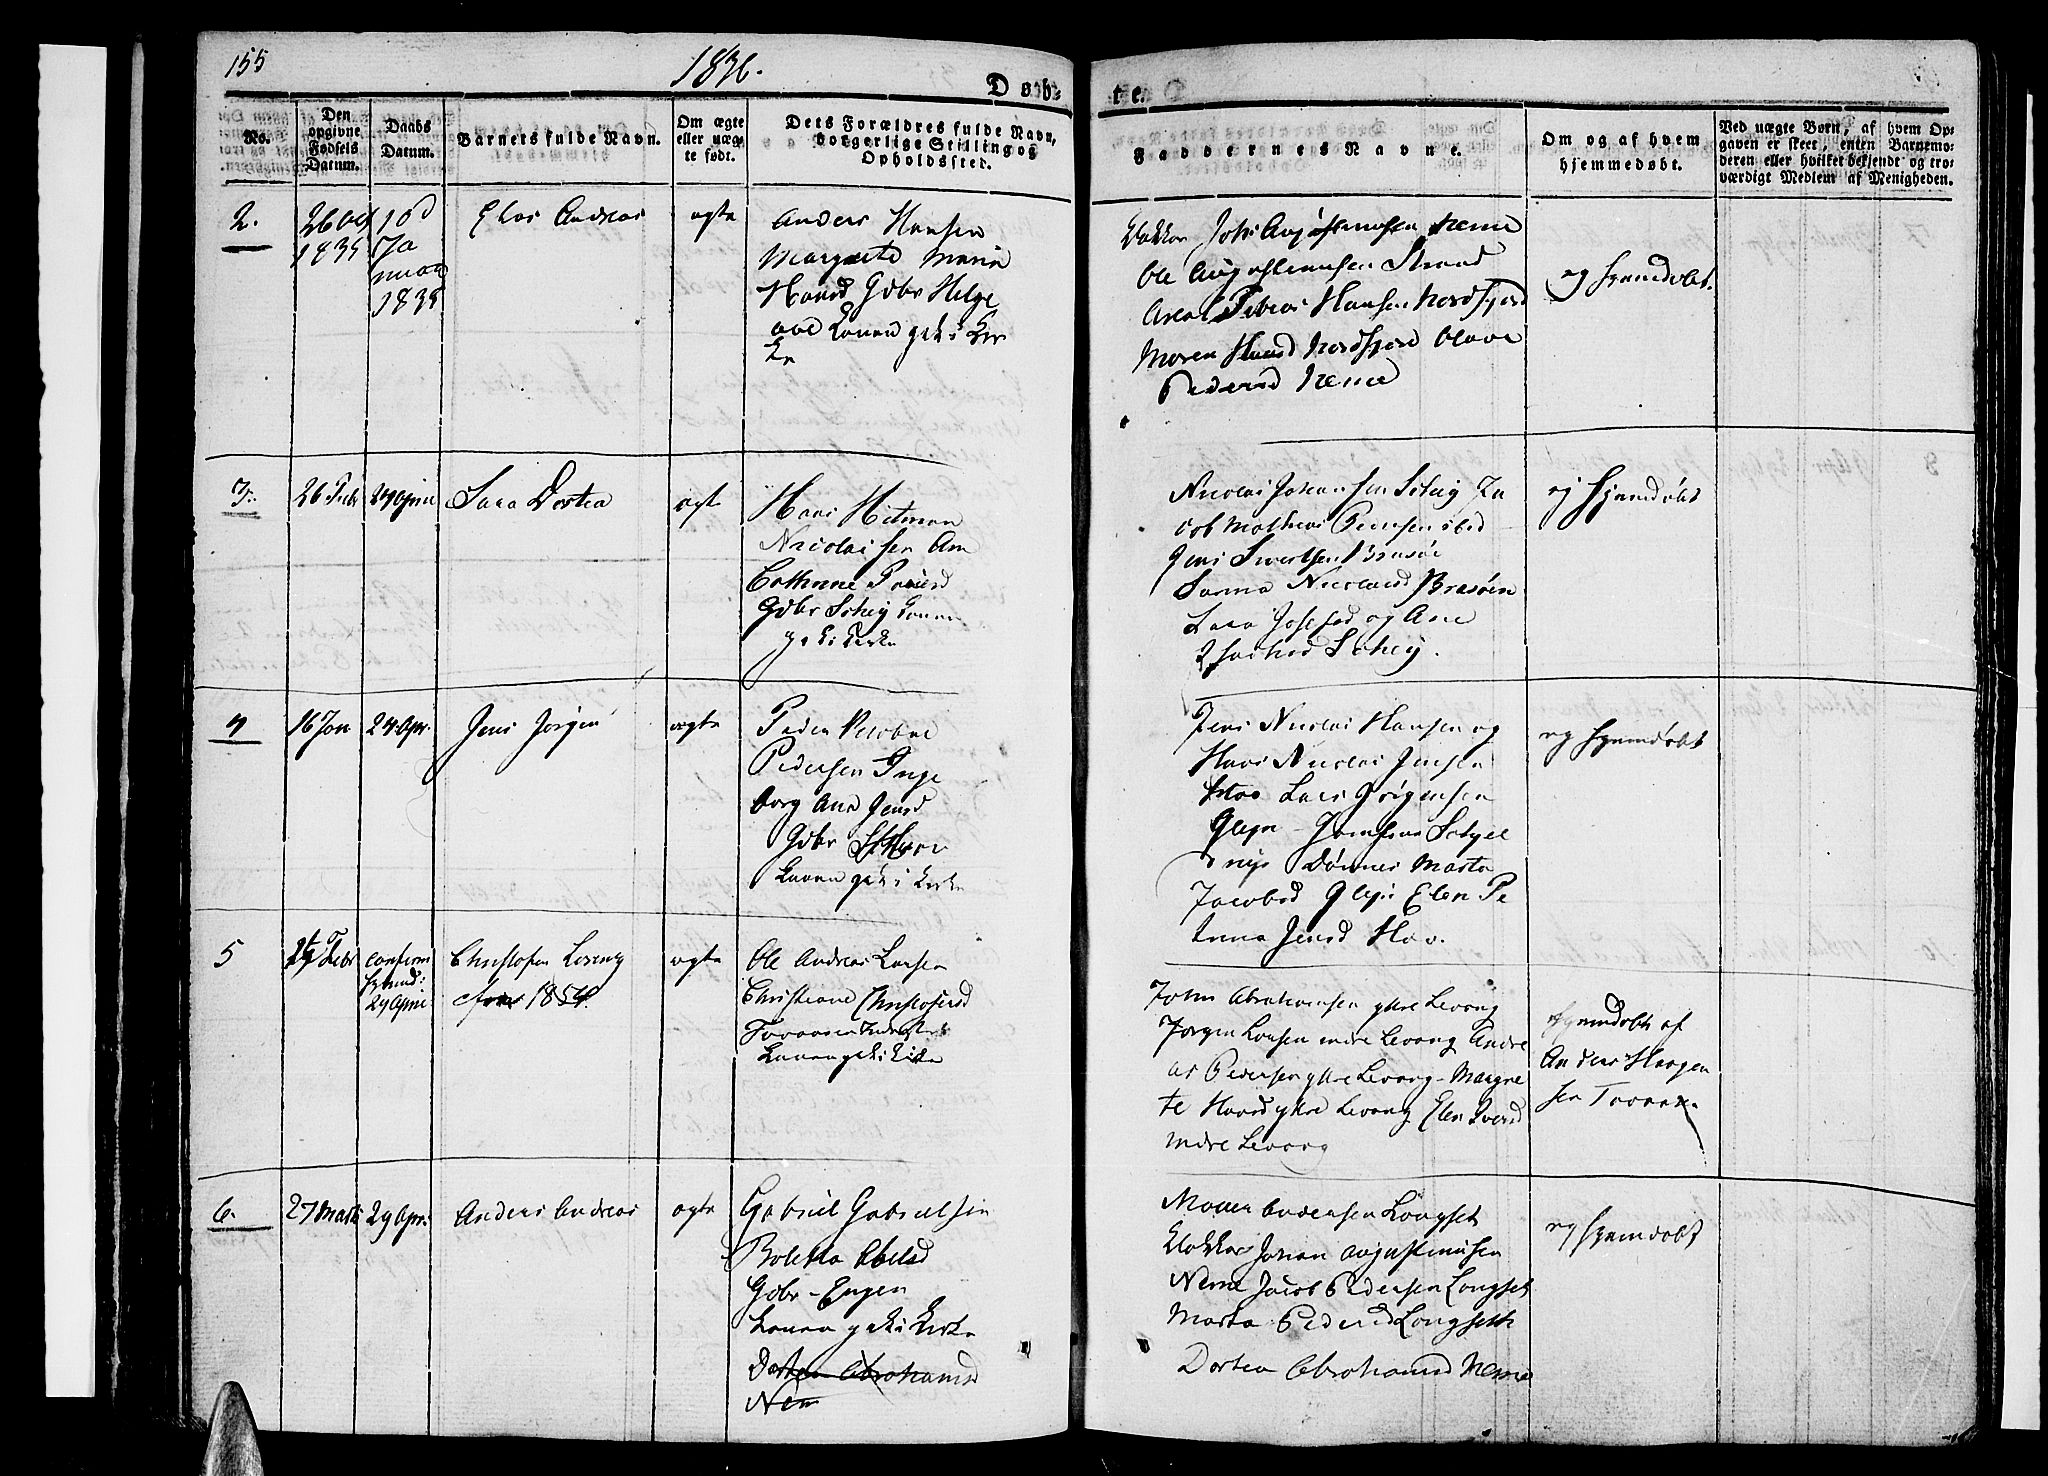 155
1836.
Døb-
te.
No.
Den
opgivne
Fødsels
Datum.
Daabs
Datum.
Barnets fulde Navn.
Om ægte
eller uæg-
te født.
Dets Forældres fulde Navn,
borgerlige Stilling og
Opholdssted.
Faddernes Navne.
Om og af hvem
hjemmedøbt.
Ved uægte Børn, af hvem Op-
gaven er skeet, enten Barnemo-
deren eller hvilket bekjendt og tro-
værdigt Medlem af Menigheden.
2.
26 Oct
1835
10d
Ja
nuar
1835
Elias Andreas
ægte
Anders Hansen
Margrete Maria
Hansd Gdbr Helge
Konen gik i Kir
ke
Klokker Johs Augustinusen Neme
Ole Augustinusen Strand
Tobias Hansen Nordfjord
Maren Hansd Nordfjord Olava
Pedersd Neme
ej hjemdøbt.
3.
26 Febr
24 April
Sara Dortea
ægte
Hans Hitman
Nicolaisen An
Cathrine
Gdbr Schey Konen
gik i Kirken
Nicolai Johansen Schey Ja
cob Mathias Pedersen ibid
Jens Sivertsen Brasøe
Nicolaisd Brasøen
Sara Josefsd og Ane
Isachsd Schey.
ej hjemdøbt
4
16 Jan
24 Apr.
Jens Jørgen
ægte
Peder
Pedersen Inge
borg Ana Jensd
Gdbr
Konen gik i Kirke
Jens Nicolai Hansen og
Hans Nicolai Jensen
Lars Jørgensen
Glejn
Dønnes Marta
Jacobsd Glejn Elen Pe
Jensd Hov.
ej hjemdøbt
5
Febr
confirm
hjemd:
29 April
Christofer Lorentz
1854.
ægte
Ole Andreas Larsen
Christiane Christofersd
Konen gik i Kirke
John Abrahamsen ytre Levang
Jørgen Larsen indre Levang Andre
as Pedersen ytre Levang - Margre
te Hansd ytre Levang Elen Iversd
indre Levang
hjemdøbt af
Anders Haagen
sen
6.
27 Marts
29 Apr.
Anders Andreas
ægte
Gabriel Gabrielsen
Boletta Abelsd
Gdbr - Engen
Konen gik i Kirke
Dortea Abrahamsd
Nem
Andersen Longset
Klokker Johan Augustinusen
Neme Jacob Pedersen Longset
Marta Pedersd Longseth
Dortea Abrahamsd Neme
ej hjemdøbt